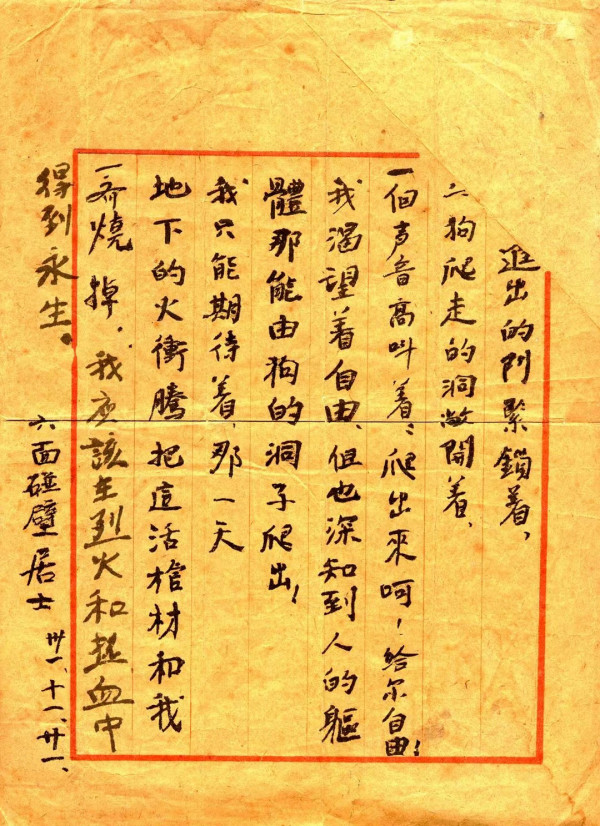 進出的門緊鎖着、
狗爬走的洞敞開着、
一個声音高叫着:爬出來呵!給尔自由!
我渴望着自由、但也深知到人的軀
體那能由狗的洞子爬出!
我只能期待着、那一天
地下的火衝騰把這活棺材和我
一齊燒掉.我应該在烈火和热血中
得到永生。
六面碰壁居士
卅一、十一、廿一、